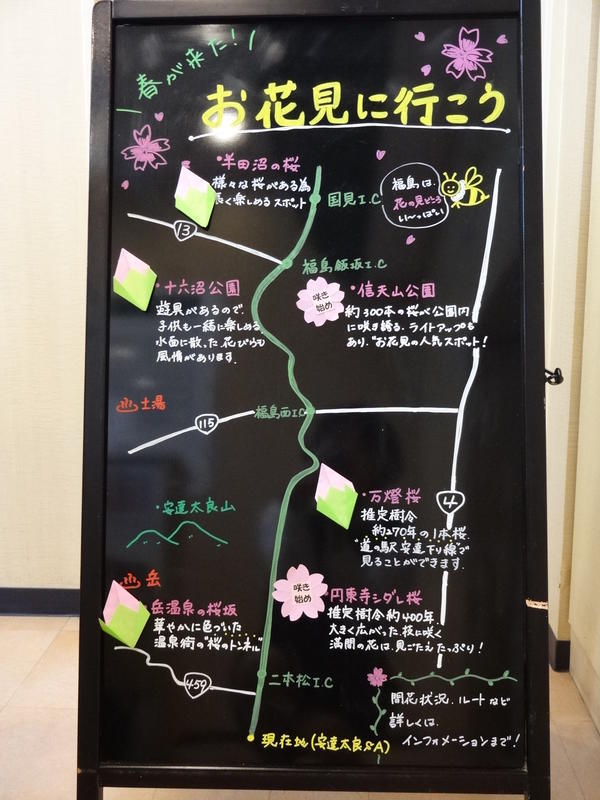 春が来た!
お花見に行こう
・半田沼の桜
様々な桜がある為
長く楽しめるスポット
国見I.C
福島は、
花の見どころ
い〜っぱい
13
福島飯坂I.C
・十六沼公園
遊具があるので、
子供も一緒に楽しめる
水面に散った花びらも
風情があります。
咲き
始め
・信夫山公園
約300本の桜が公園内
に咲き誇る。ライトアップも
あり、"お花見の人気スポット!
土湯
115
福島西I.C
4
・安達太良山
・万燈桜
推定樹令
約270年の1本桜。
"道の駅安達下り線"で
見ることができます。
岳
・岳温泉の桜坂
華やかに色づいた
温泉街の"桜のトンネル"
咲き
始め
円東寺シダレ桜
推定樹令約400年。
大きく広がった枝に咲く
満開の花は、見ごたえたっぷり!
459
二本松I.C
開花状況、ルートなど
詳しくは、
インフォメーションまで!
現在地(安達太良SA)